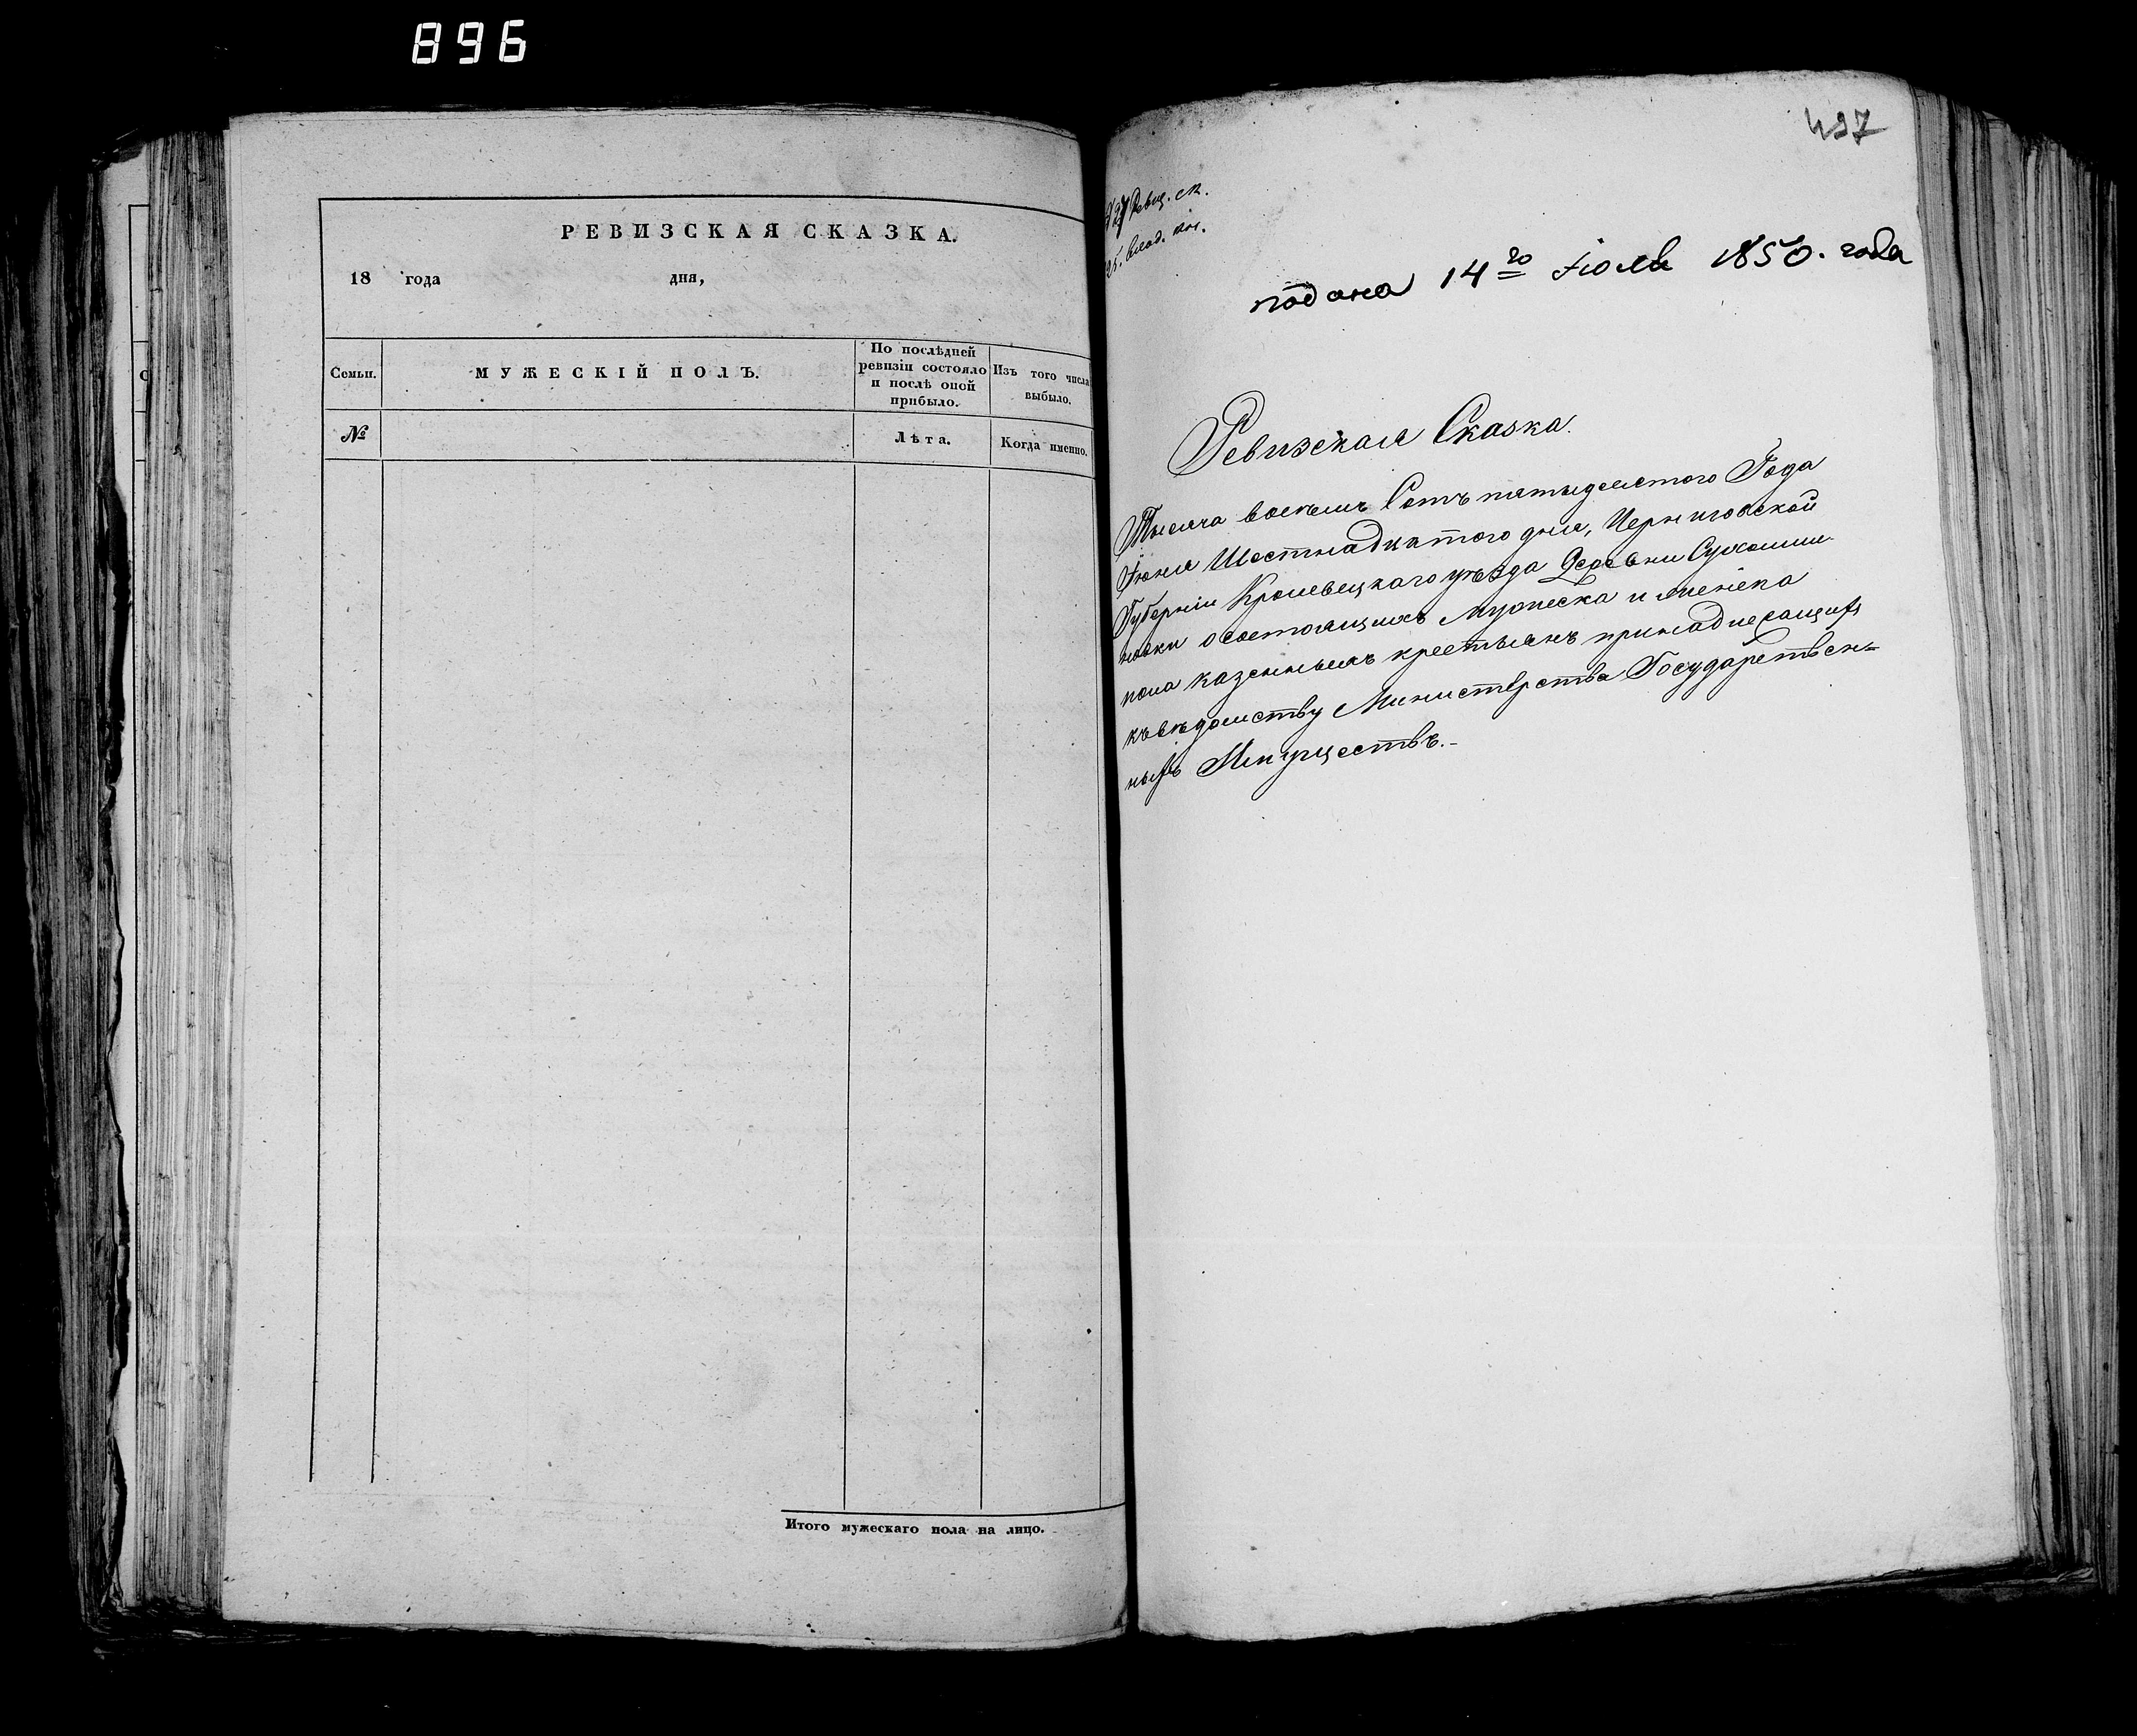 896
РЕВИЗСКАЯ СКАЗКА.
18 года дня,
Семьи.
МУЖЕСКІЙ ПОЛЪ.
По послѣдней
ревизіи состояло
и послѣ оной
прибыло.
Изъ того числа
выбыло.
№
Лѣта.
Когда именно.
Итого мужескаго пола на лицо.
497
27 Ревиз. ск.
25. влад.
подана 14го Іюля 1850. года
Ревизская Сказка.
Тысяча восемь Сотъ пятьдесятого Года
Іюня Шестнадцатого дня, Черниговской
Губерніи Кролевецкаго уѣзда Деревни Сухоши
новки о состоящихъ Мужеска и женска
пола казенныхъ крестьянъ принадлежащихъ
къ вѣдомству Министерства Государствен=
ныхъ Имуществъ.-